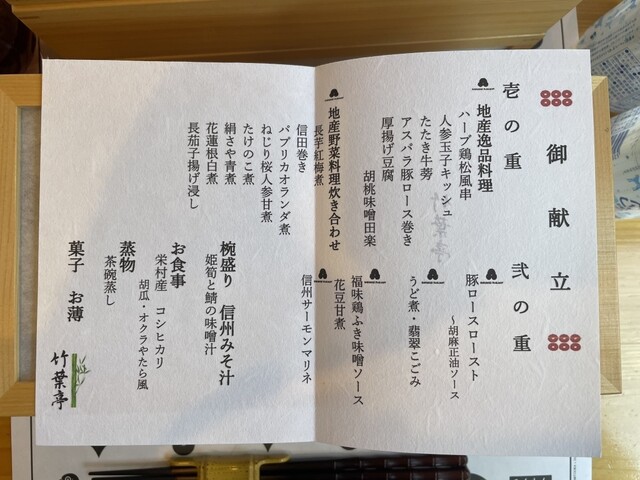 御献立
壱の重
地産逸品料理
ハーブ鶏松風串
人参玉子キッシュ
たたき牛蒡
アスパラ豚ロース巻き
厚揚げ豆腐
胡桃味噌田楽
地産野菜料理炊き合わせ
長芋紅梅煮
信田巻き
パプリカオランダ煮
ねじり桜人参甘煮
たけのこ煮
絹さや青煮
花蓮根白煮
長茄子揚げ浸し
弐の重
豚ロースロースト
～胡麻正油ソース
うど煮・翡翠こごみ
福味鶏ふき味噌ソース
花豆甘煮
信州サーモンマリネ
椀盛り 信州みそ汁
姫筍と鯖の味噌汁
お食事
栄村産 コシヒカリ
胡瓜・オクラやたら風
蒸物
茶碗蒸し
菓子 お薄
竹葉亭